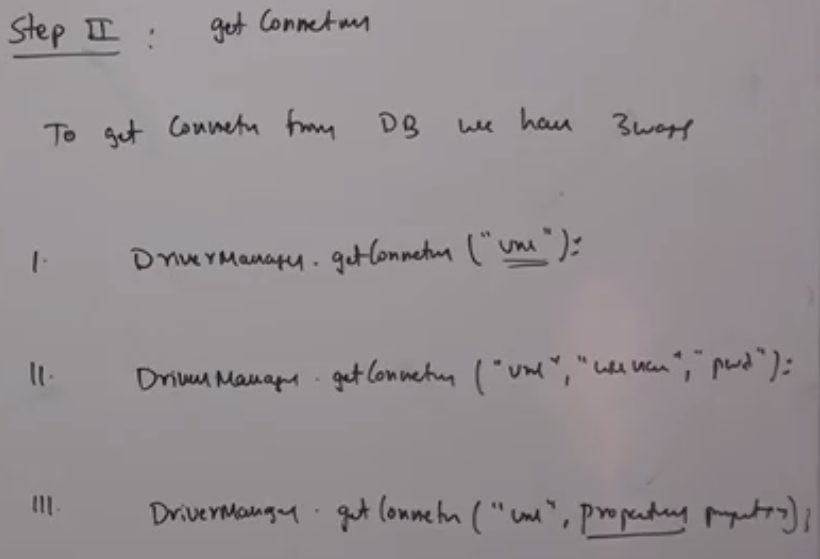 Step II : get Connection
To get Connection from DB we have 3 ways
I. DriverManager.getConnection ("url");
II. DriverManager.getConnection ("url", "username", "pwd");
III. DriverManager.getConnection ("url", properties properties);